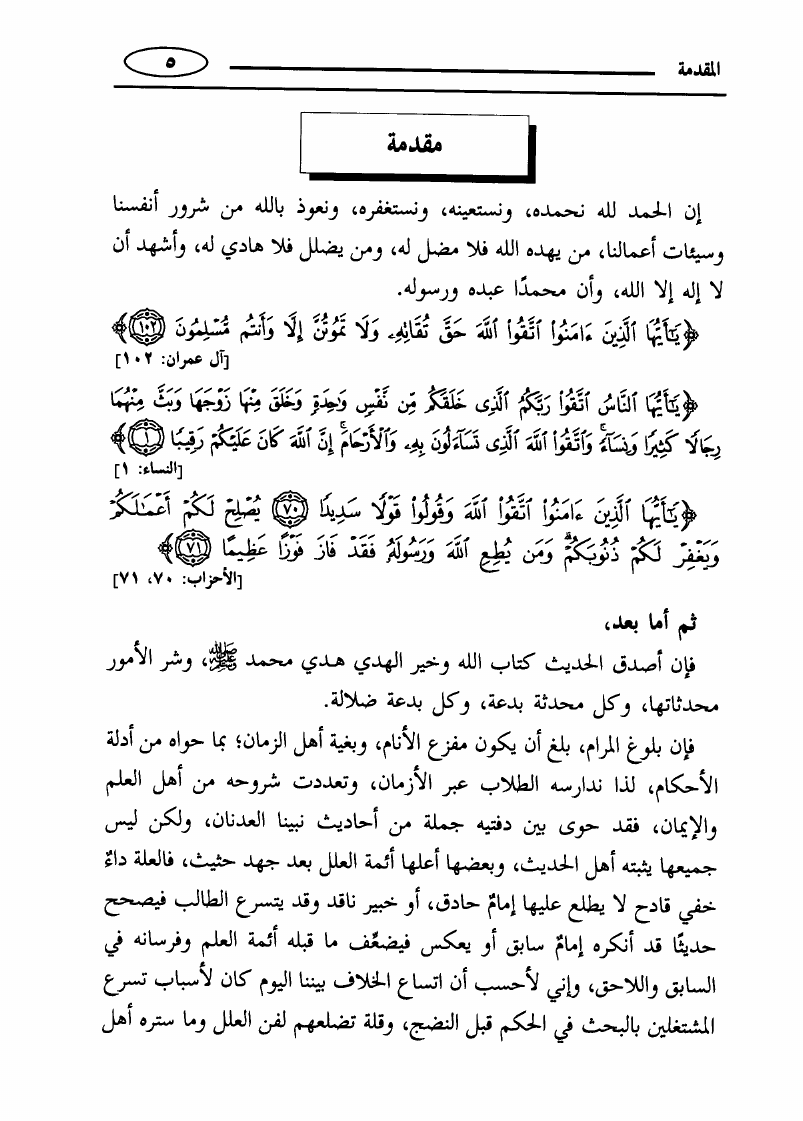 المقدمة ٥
مقدمة
إن الحمد لله نحمده، ونستعينه، ونستغفره، ونعوذ بالله من شرور أنفسنا
وسيئات أعمالنا، من يهده الله فلا مضل له، ومن يضلل فلا هادي له، وأشهد أن
لا إله إلا الله، وأن محمدًا عبده ورسوله.
﴿يَٰٓأَيُّهَا ٱلَّذِينَ ءَامَنُوا۟ ٱتَّقُوا۟ ٱللَّهَ حَقَّ تُقَاتِهِۦ وَلَا تَمُوتُنَّ إِلَّا وَأَنتُم مُّسْلِمُونَ ١٠٢﴾
[آل عمران: ١٠٢]
﴿يَٰٓأَيُّهَا ٱلنَّاسُ ٱتَّقُوا۟ رَبَّكُمُ ٱلَّذِى خَلَقَكُم مِّن نَّفْسٍ وَٰحِدَةٍ وَخَلَقَ مِنْهَا زَوْجَهَا وَبَثَّ مِنْهُمَا
رِجَالًا كَثِيرًا وَنِسَآءً ۚ وَٱتَّقُوا۟ ٱللَّهَ ٱلَّذِى تَسَآءَلُونَ بِهِۦ وَٱلْأَرْحَامَ ۚ إِنَّ ٱللَّهَ كَانَ عَلَيْكُمْ رَقِيبًا ١﴾
[النساء: ١]
﴿يَٰٓأَيُّهَا ٱلَّذِينَ ءَامَنُوا۟ ٱتَّقُوا۟ ٱللَّهَ وَقُولُوا۟ قَوْلًا سَدِيدًا ٧٠ يُصْلِحْ لَكُمْ أَعْمَٰلَكُمْ
وَيَغْفِرْ لَكُمْ ذُنُوبَكُمْ ۗ وَمَن يُطِعِ ٱللَّهَ وَرَسُولَهُۥ فَقَدْ فَازَ فَوْزًا عَظِيمًا ٧١﴾
[الأحزاب: ٧٠، ٧١]
ثم أما بعد،
فإن أصدق الحديث كتاب الله وخير الهدي هدي محمد ﷺ، وشر الأمور
محدثاتها، وكل محدثة بدعة، وكل بدعة ضلالة.
فإن بلوغ المرام، بلغ أن يكون مفزع الأنام، وبغية أهل الزمان؛ بما حواه من أدلة
الأحكام، لذا ندارسه الطلاب عبر الأزمان، وتعددت شروحه من أهل العلم
والإيمان، فقد حوى بين دفتيه جملة من أحاديث نبينا العدنان، ولكن ليس
جميعها يثبته أهل الحديث، وبعضها أعلها أئمة العلل بعد جهد حثيث، فالعلة داءٌ
خفي قادح لا يطلع عليها إمامٌ حادق، أو خبير ناقد وقد يتسرع الطالب فيصحح
حديثًا قد أنكره إمامٌ سابق أو يعكس فيضعِّف ما قبله أئمة العلم وفرسانه في
السابق واللاحق، وإني لأحسب أن اتساع الخلاف بيننا اليوم كان لأسباب تسرع
المشتغلين بالبحث في الحكم قبل النضج، وقلة تضلعهم لفن العلل وما ستره أهل